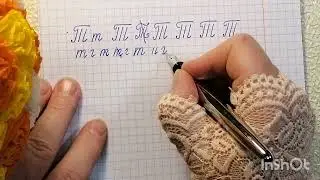 Т т Т Т Т Т Т Т
т г т т г т и г
InShOt